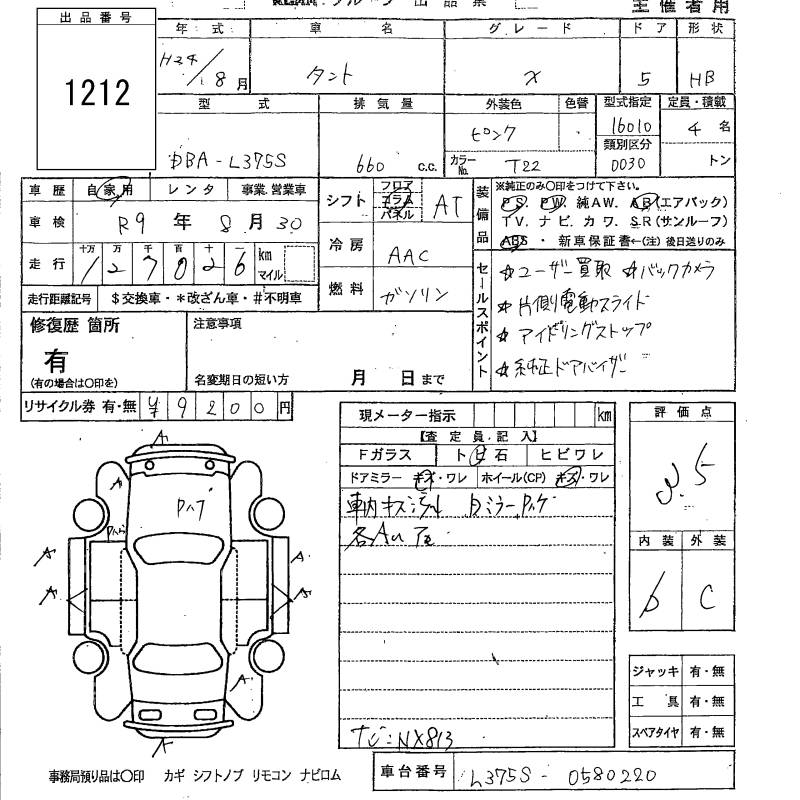 出品票
主催者用
出品番号
1212
年式 車名 グレード ドア 形状
H24/8月 タント X 5 HB
型式 排気量 外装色 色替 型式指定 定員・積載
DBA-L375S 660 c.c. ピンク ・ 16010 4名
カラーNo. T22 類別区分 0030 トン
車歴 自家用 レンタ 事業営業車
車検 R9年8月30
走行 十万 万 千 百 十 一 km マイル
127026
走行距離記号 $交換車・*改ざん車・#不明車
シフト フロア コラム パネル AT
冷房 AAC
燃料 ガソリン
装備品 ※純正のみ○印をつけて下さい。
PS. PW. 純AW. AB(エアバック)
TV. ナビ. カワ. SR(サンルーフ)
ABS ・ 新車保証書←(注)後日送りのみ
セールスポイント
☆ユーザー買取 ☆バックカメラ
☆片側電動スライド
☆アイドリングストップ
☆純正ドアバイザー
修復歴 箇所
有
(有の場合は○印を)
注意事項
名変期日の短い方 月 日まで
リサイクル券 有・無 ¥9200円
現メーター指示 km
【査定員記入】
Fガラス トビ石 ヒビワレ
ドアミラー キズ・ワレ ホイール(CP) キズ・ワレ
車内キズ汚れ
ナビ:NX813
評価点
3.5
内装 外装
D C
ジャッキ 有・無
工具 有・無
スペアタイヤ 有・無
A
A
A
A
A
A
A
A
事務局預り品は○印 カギ シフトノブ リモコン ナビロム
車台番号 L375S-0580220